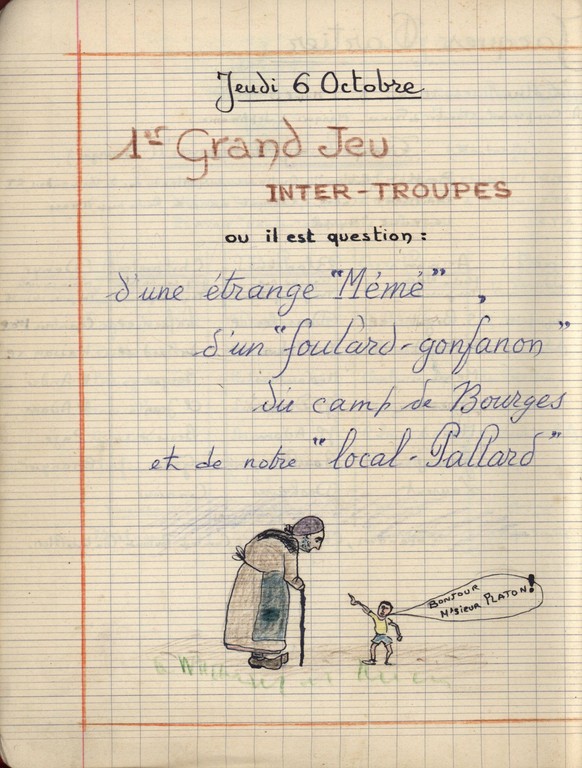 Jeudi 6 Octobre
1er Grand Jeu
INTER-TROUPES
ou il est question :
d'une étrange "Mémé" ,
d'un "foulard-gonfanon"
du camp de Bourges
et de notre "local-Pallard"
BONJOUR
M'SIEUR PLATON!